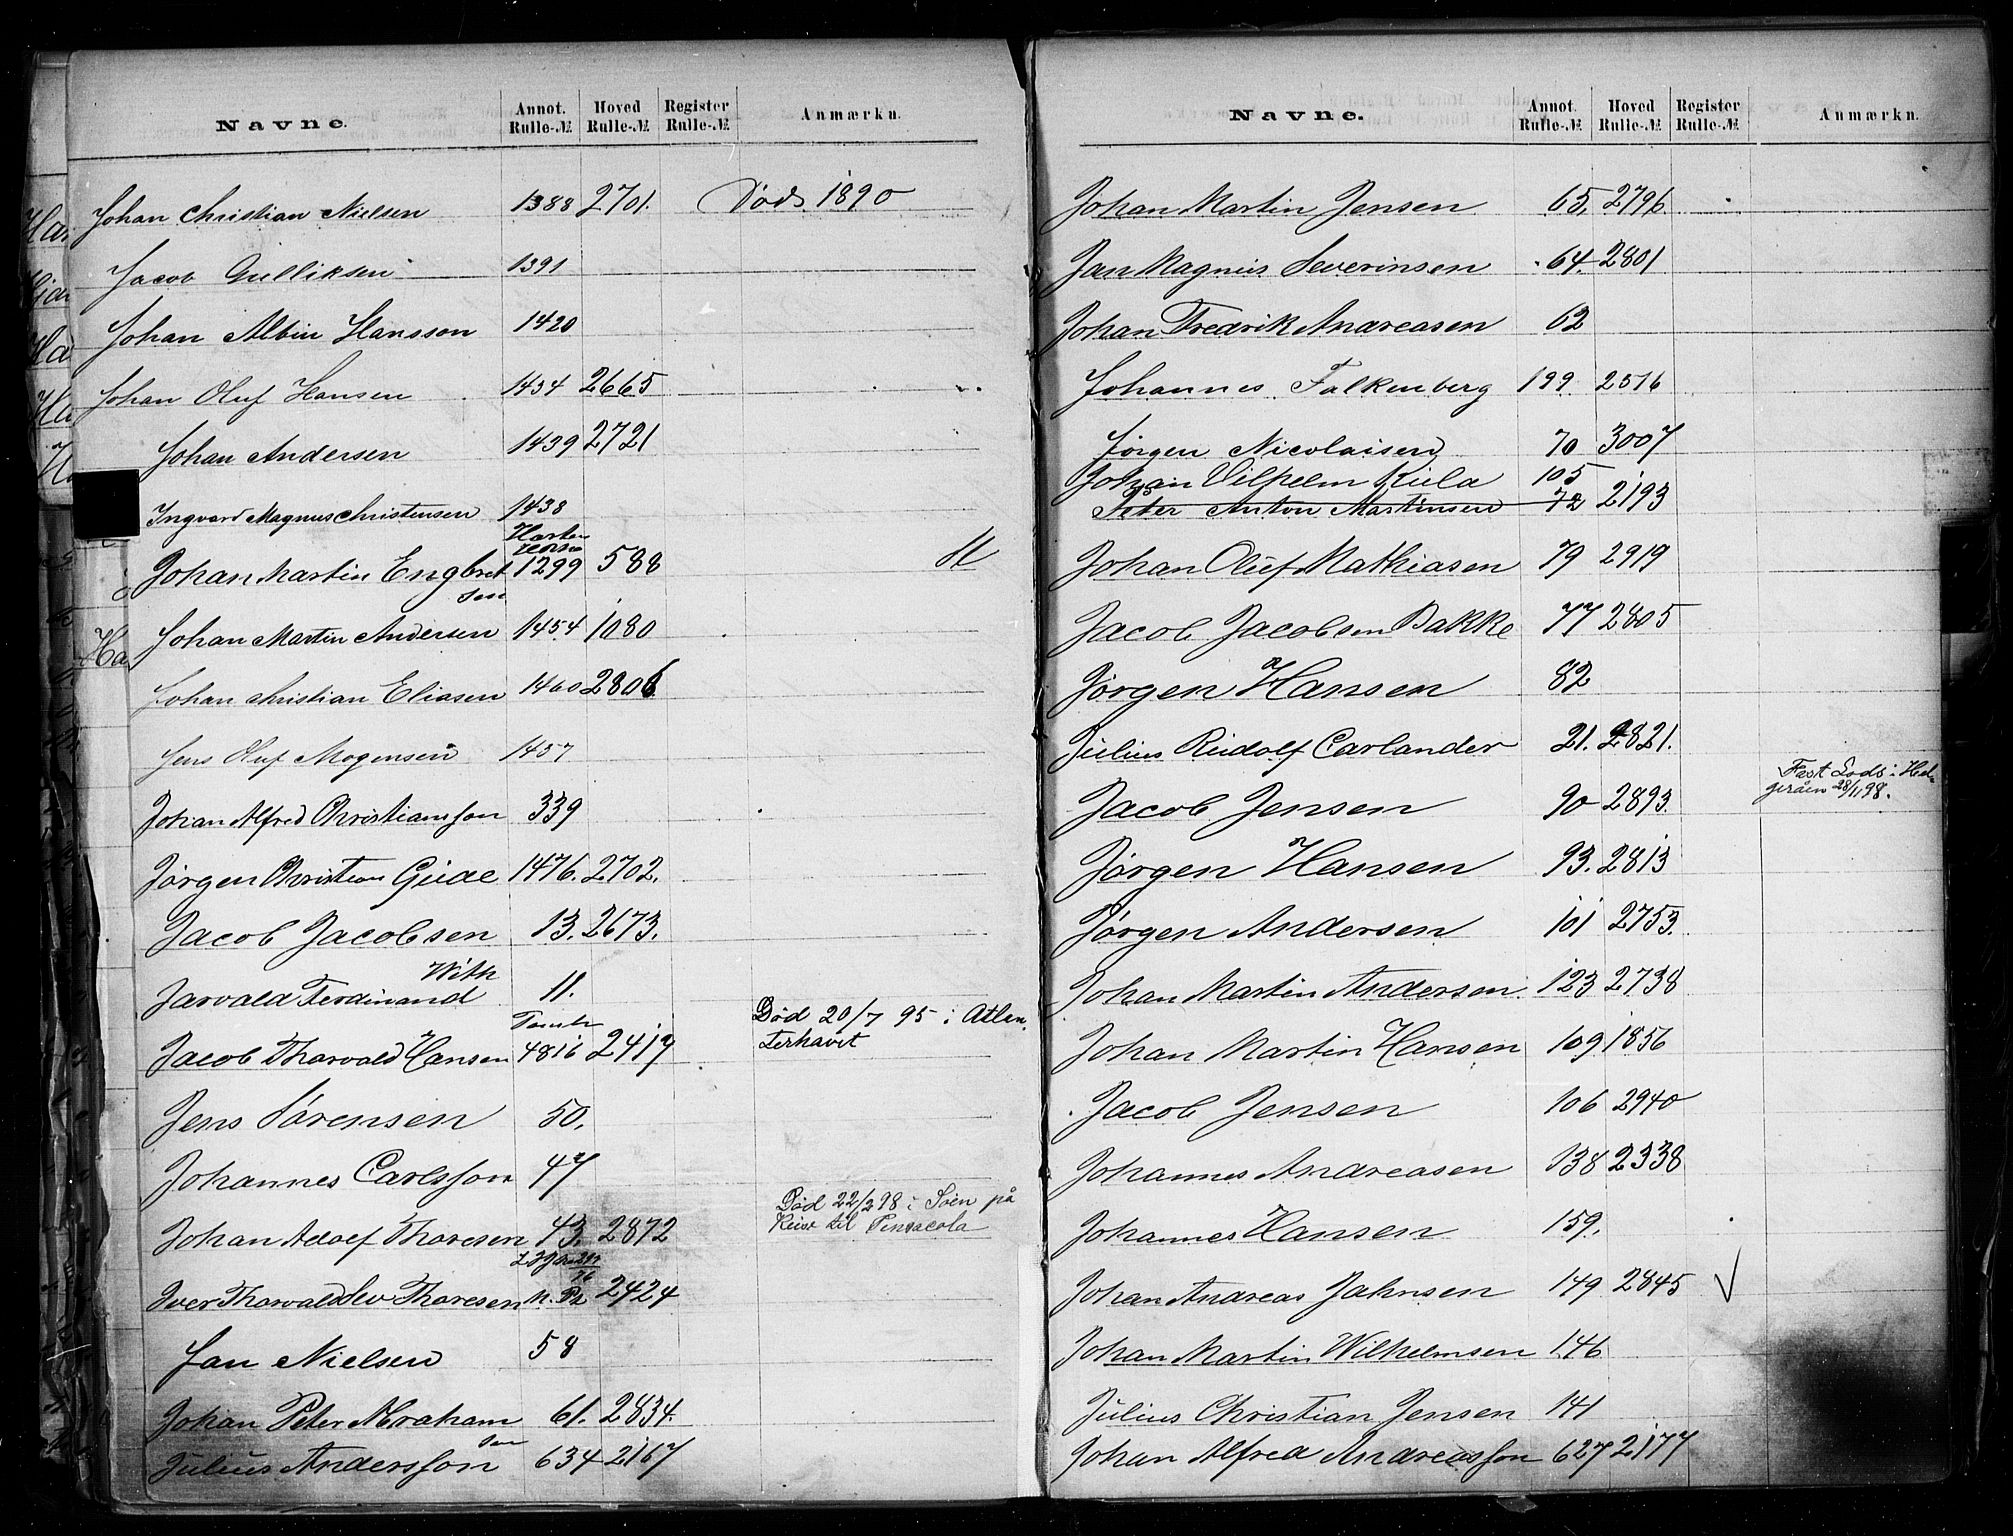 Navne. Annot. Rulle-№ Hoved Rulle-№ Register Rulle-№ Anmærkn.
Johan Christian Nielsen 1388 2701. Død 1890
Jacob Gulliksen 1391
Johan Albin Hansson 1420
Johan Oluf Hansen 1434 2665
Johan Andersen 1439 2721
Ingvard Magnus Christensen 1438
Johan Martin Engbret 1299 588
sen
Johan Martin Andersen 1454 1080
Johan Christian Eliasen 1460 2806
Jens Oluf Mogensen 1457
Johan Alfred Christiansson 339
Jörgen Christian Gude 1476. 2702.
Jacob Jacobsen 13. 2673.
With
Jarvald Ferdinand 11.
Jacob Tharvald Hansen 4816 2417 Död 20/7 95 i Atlan
terhavet
Jens Sörensen 50.
Johannes Carlsson 47
Johan Adolf Thoresen 43. 2872 Död 22/2 98 i Søen på
Reise til Pensacola
Iver Tharvald Sev Thoresen 2424
Jan Nielsen 58
Johan Peter Abraham 61. 2834.
sen
Julius Andersson 634 2167
Navne. Annot. Rulle-№ Hoved Rulle-№ Register Rulle-№ Anmærkn.
Johan Martin Jensen 65. 2796
Jan Magnus Severinsen 64. 2801
Johan Fredrik Andreasen 62
Johannes Falkenberg 199. 2516
Jörgen Nicolaisen 70 3007
Johan Vilhelm Kula 105
Peter Anton Martinsen 72 2193
Johan Oluf Mathiasen 79 2919
Jacob Jacobsen Bakke 77 2805
Jörgen Hansen 82
Julius Rudolf Carlander 21. 2821.
Jacob Jensen 90 2893. Fast Lods i
28/11 98.
Jörgen Hansen 93. 2813
Jörgen Andersen 101 2753.
Johan Martin Andersen 123 2738
Johan Martin Hansen 109 1856
Jacob Jensen 106 2940
Johannes Andreasen 138 2338
Johannes Hansen 159.
Johan Andreas Jahnsen 149 2845 √
Johan Martin Wilhelmsen 146
Julius Christian Jensen 141
Johan Alfred Andreasson 627 2177